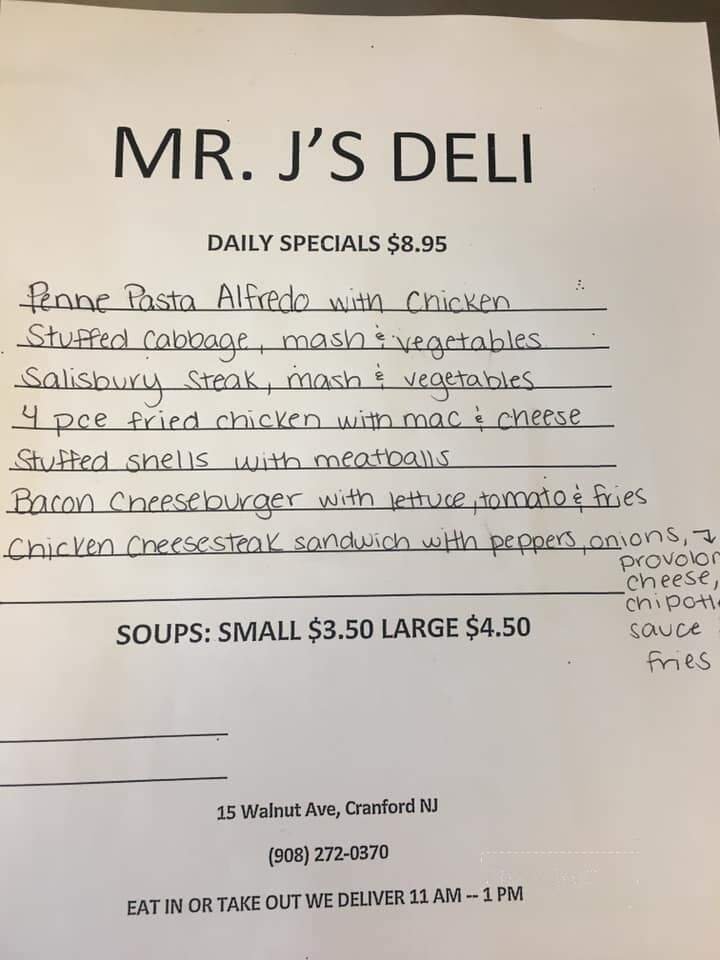 MR. J'S DELI
DAILY SPECIALS $8.95
Penne Pasta Alfredo with Chicken
Stuffed Cabbage, mash & vegetables
Salisbury Steak, mash & vegetables
4 pce fried chicken with mac & cheese
Stuffed shells with meatballs
Bacon Cheeseburger with lettuce, tomato & fries
Chicken Cheesesteak sandwich with peppers, onions,
cheese,
sauce
fries
SOUPS: SMALL $3.50 LARGE $4.50
15 Walnut Ave, Cranford NJ
(908) 272-0370
EAT IN OR TAKE OUT WE DELIVER 11 AM -- 1 PM